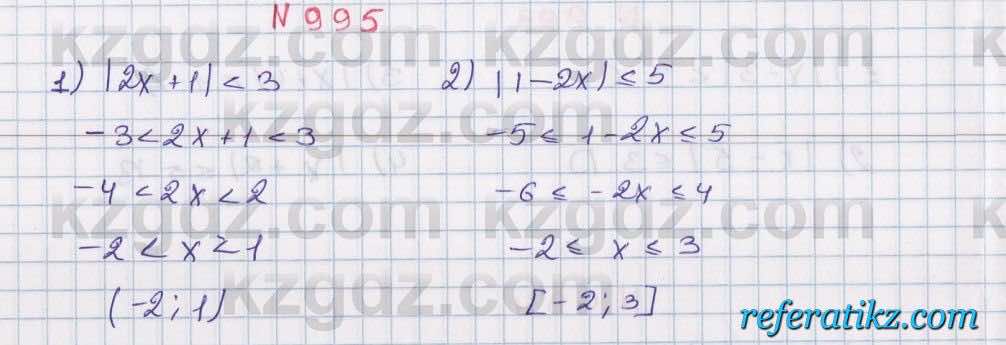 N 995
1) |2x+1| < 3
-3 < 2x+1 < 3
-4 < 2x < 2
-2 < x > 1
(-2; 1)
2) |1-2x| ≤ 5
-5 ≤ 1-2x ≤ 5
-6 ≤ -2x ≤ 4
-2 ≤ x ≤ 3
[-2; 3]
kzgdz.com
kzgdz.com
kzgdz.com
kzgdz.com
kzgdz.com
kzgdz.com
kzgdz.com
kzgdz.com
kzgdz.com
referatikz.com